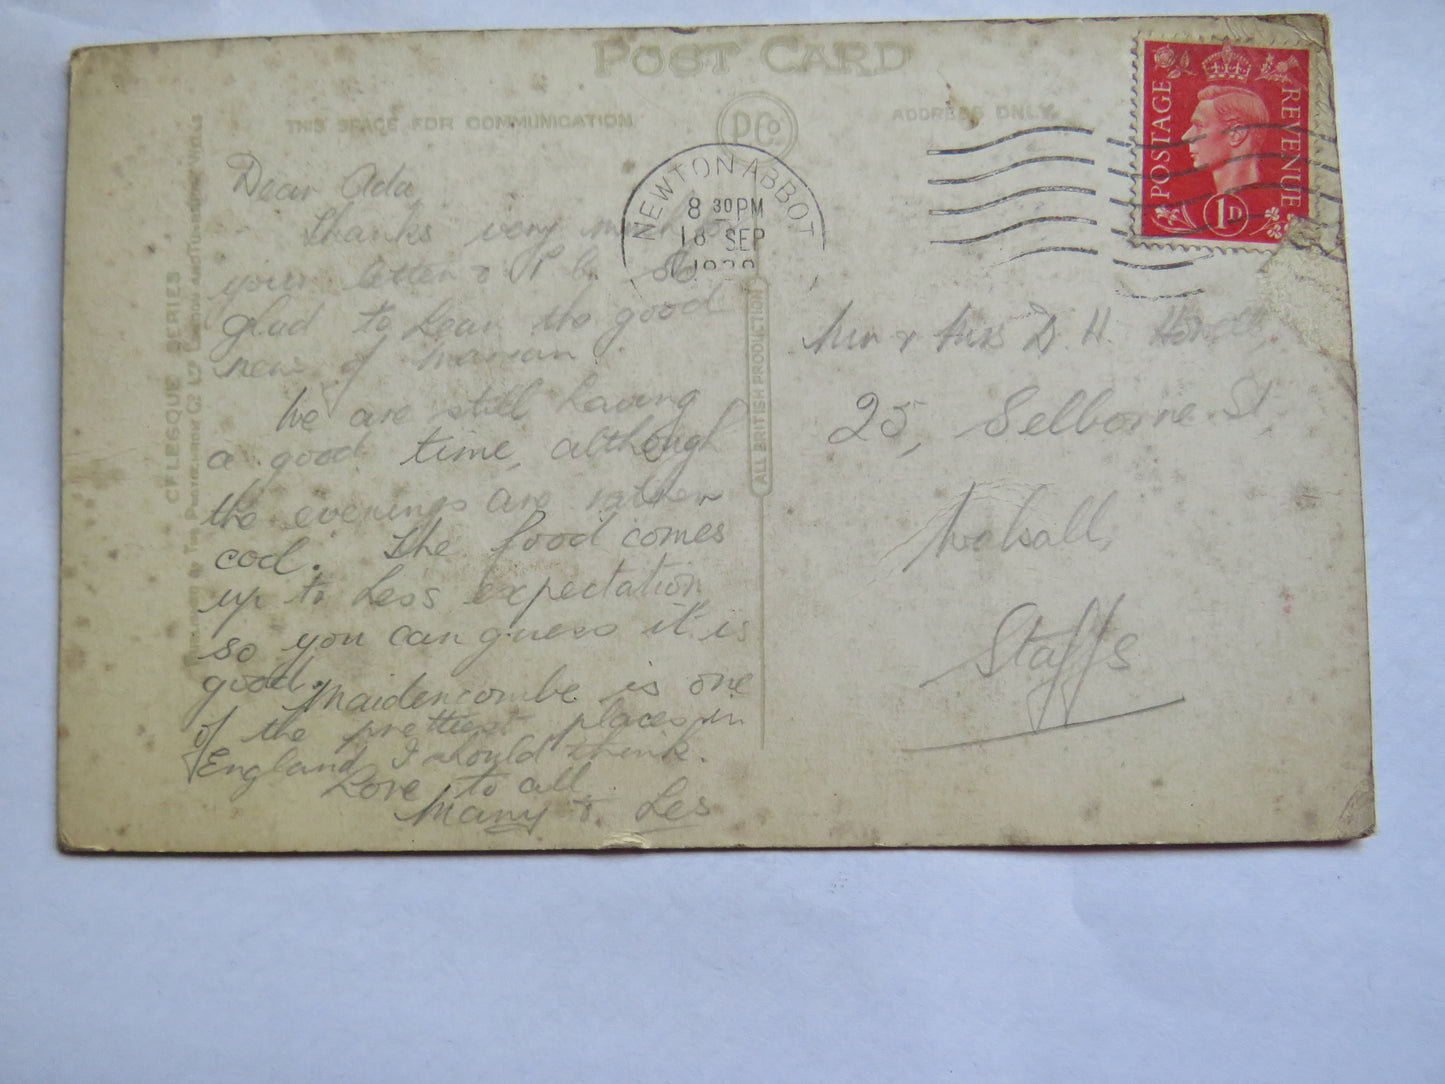 POST CARD
THIS SPACE FOR COMMUNICATION
ADDRESS ONLY.
P Co.
NEWTON ABBOT
8 30 PM
18 SEP
POSTAGE
REVENUE
1D
CELESQUE SERIES
ALL BRITISH PRODUCTION
Dear Ada
Thanks very much for
your letter & P.C. So
glad to hear the good
news of Marian.
We are still having
a good time, although
the evenings are rather
cool. The food comes
up to Less expectation
so you can guess it is
good. Maidencombe is one
of the prettiest places in
England I should think.
Love to all
Many & Les
Mr & Mrs D. H.
25, Selborne St
Walsall,
Staffs